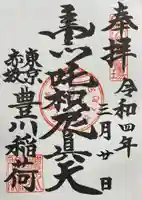 奉拝
令和四年
三月廿日
荼吒枳尼真天
東京
赤坂
豊川稲荷